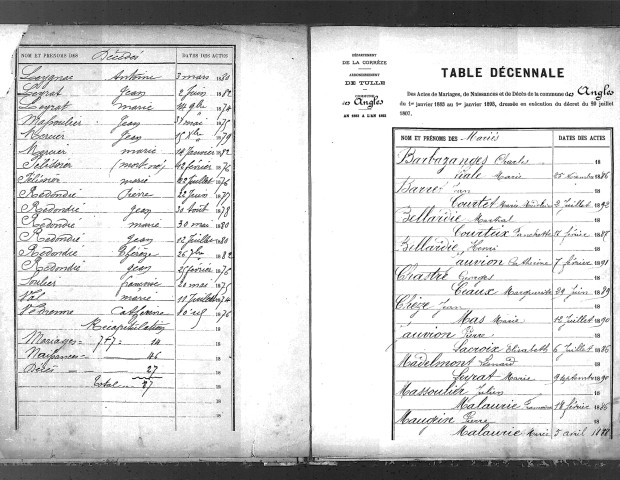 NOM ET PRÉNOMS DES Décédés DATES DES ACTES
Leygnac Antoine 3 mars 1880
Leyrat Jean 2 juin 1882
Leyrat marie 14 9bre 1874
Massoulier Jean 31 mai 1875
Mercier Jean 15 Xbre 1879
Mercier marie 14 Janvier 1882
Pélissier (mort né) février 1876
Pélissier marie Juillet 1876
Redondié Pierre 22 juin 1877
Redondié Jean 30 août 1878
Redondié marie 30 mai 1880
Redondié Jean 12 Juillet 1880
Redondié Thérèze 26 7bre 1882
Redondié Jean 25 février 1876
Soulier françoise 20 mai 1875
Val marie 11 Juillet 1874
Catherine 1876
Récapitulation
Mariages 14
Naissances 46
Décès 27
Total 87
DÉPARTEMENT
DE LA CORRÈZE
ARRONDISSEMENT
DE TULLE
COMMUNE
des Angles
TABLE DÉCENNALE
Des Actes de Mariages, de Naissances et de Décès de la commune des Angles
du 1er janvier 1883 au 1er janvier 1893, dressée en exécution du décret du 20 juillet
1807.
NOM ET PRÉNOMS DES Mariés DATES DES ACTES
Barbazanges Charles 18
Viale Marie 25 1886
Barret Jean 18
Courtet Marie 2 Juillet 1892
Bellardie Martial 18
Courteix février 1885
Bellardie Henri 18
Fauvion Catherine 7 février 1891
Chastre Georges 18
Ceaux Marguerite 29 Juin 1889
Chèze Jean 18
Mas Marie 12 Juillet 1890
Fauvion Pierre 18
Lacroix Elisabeth 6 Juillet 1886
Madelmont Léonard 18
Leyrat Marie 9 septembre 1890
Massoulier Julien 18
Malaurie 18 février 1886
Maugein Pierre 18
Malaurie Marie 5 avril 1888